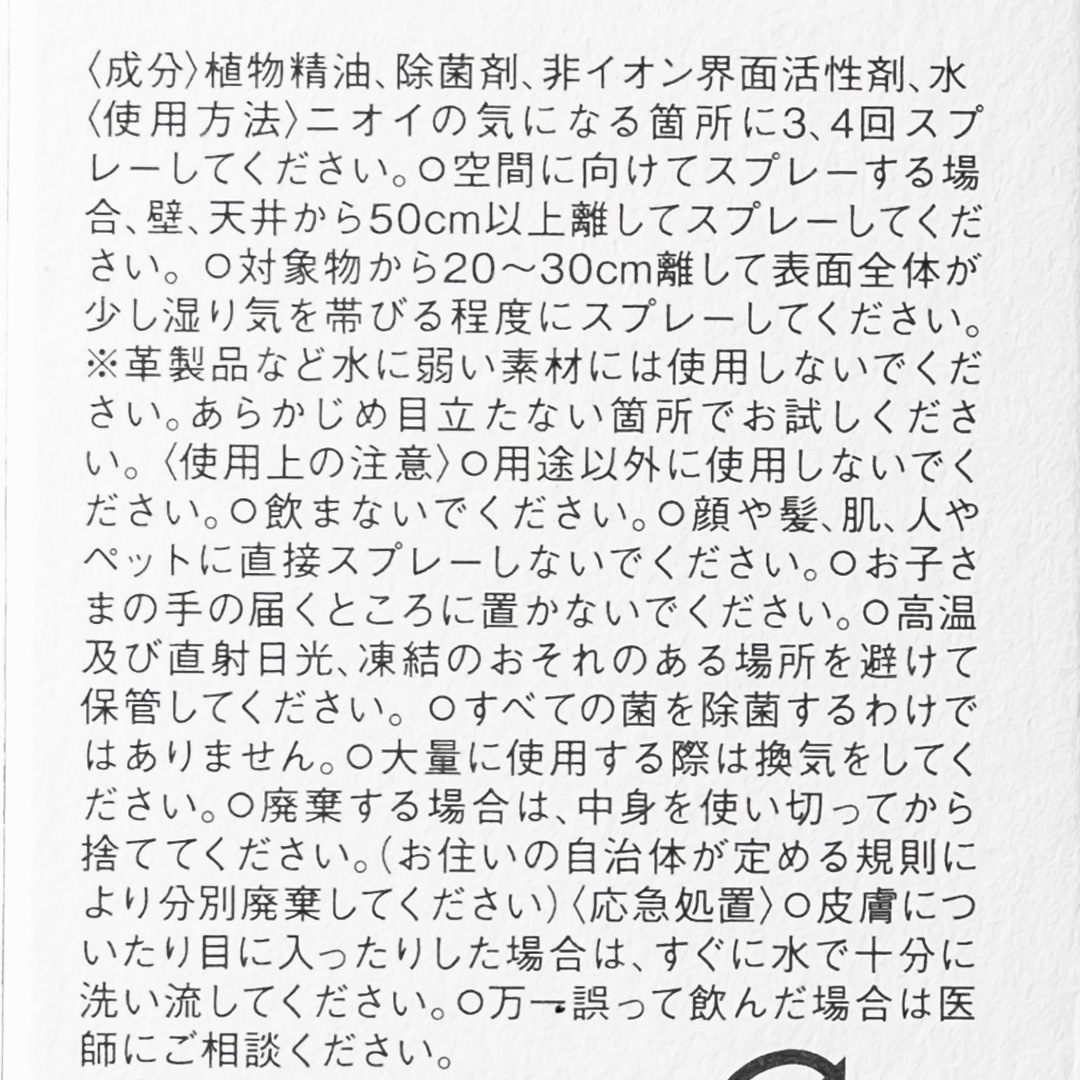 〈成分〉植物精油、除菌剤、非イオン界面活性剤、水
〈使用方法〉ニオイの気になる箇所に3、4回スプ
レーしてください。○空間に向けてスプレーする場
合、壁、天井から50cm以上離してスプレーしてくだ
さい。○対象物から20〜30cm離して表面全体が
少し湿り気を帯びる程度にスプレーしてください。
※革製品など水に弱い素材には使用しないでくだ
さい。あらかじめ目立たない箇所でお試しくださ
い。〈使用上の注意〉○用途以外に使用しないでく
ださい。○飲まないでください。○顔や髪、肌、人や
ペットに直接スプレーしないでください。○お子さ
まの手の届くところに置かないでください。○高温
及び直射日光、凍結のおそれのある場所を避けて
保管してください。○すべての菌を除菌するわけで
はありません。○大量に使用する際は換気をしてく
ださい。○廃棄する場合は、中身を使い切ってから
捨ててください。(お住いの自治体が定める規則に
より分別廃棄してください)〈応急処置〉○皮膚につ
いたり目に入ったりした場合は、すぐに水で十分に
洗い流してください。○万一、誤って飲んだ場合は医
師にご相談ください。